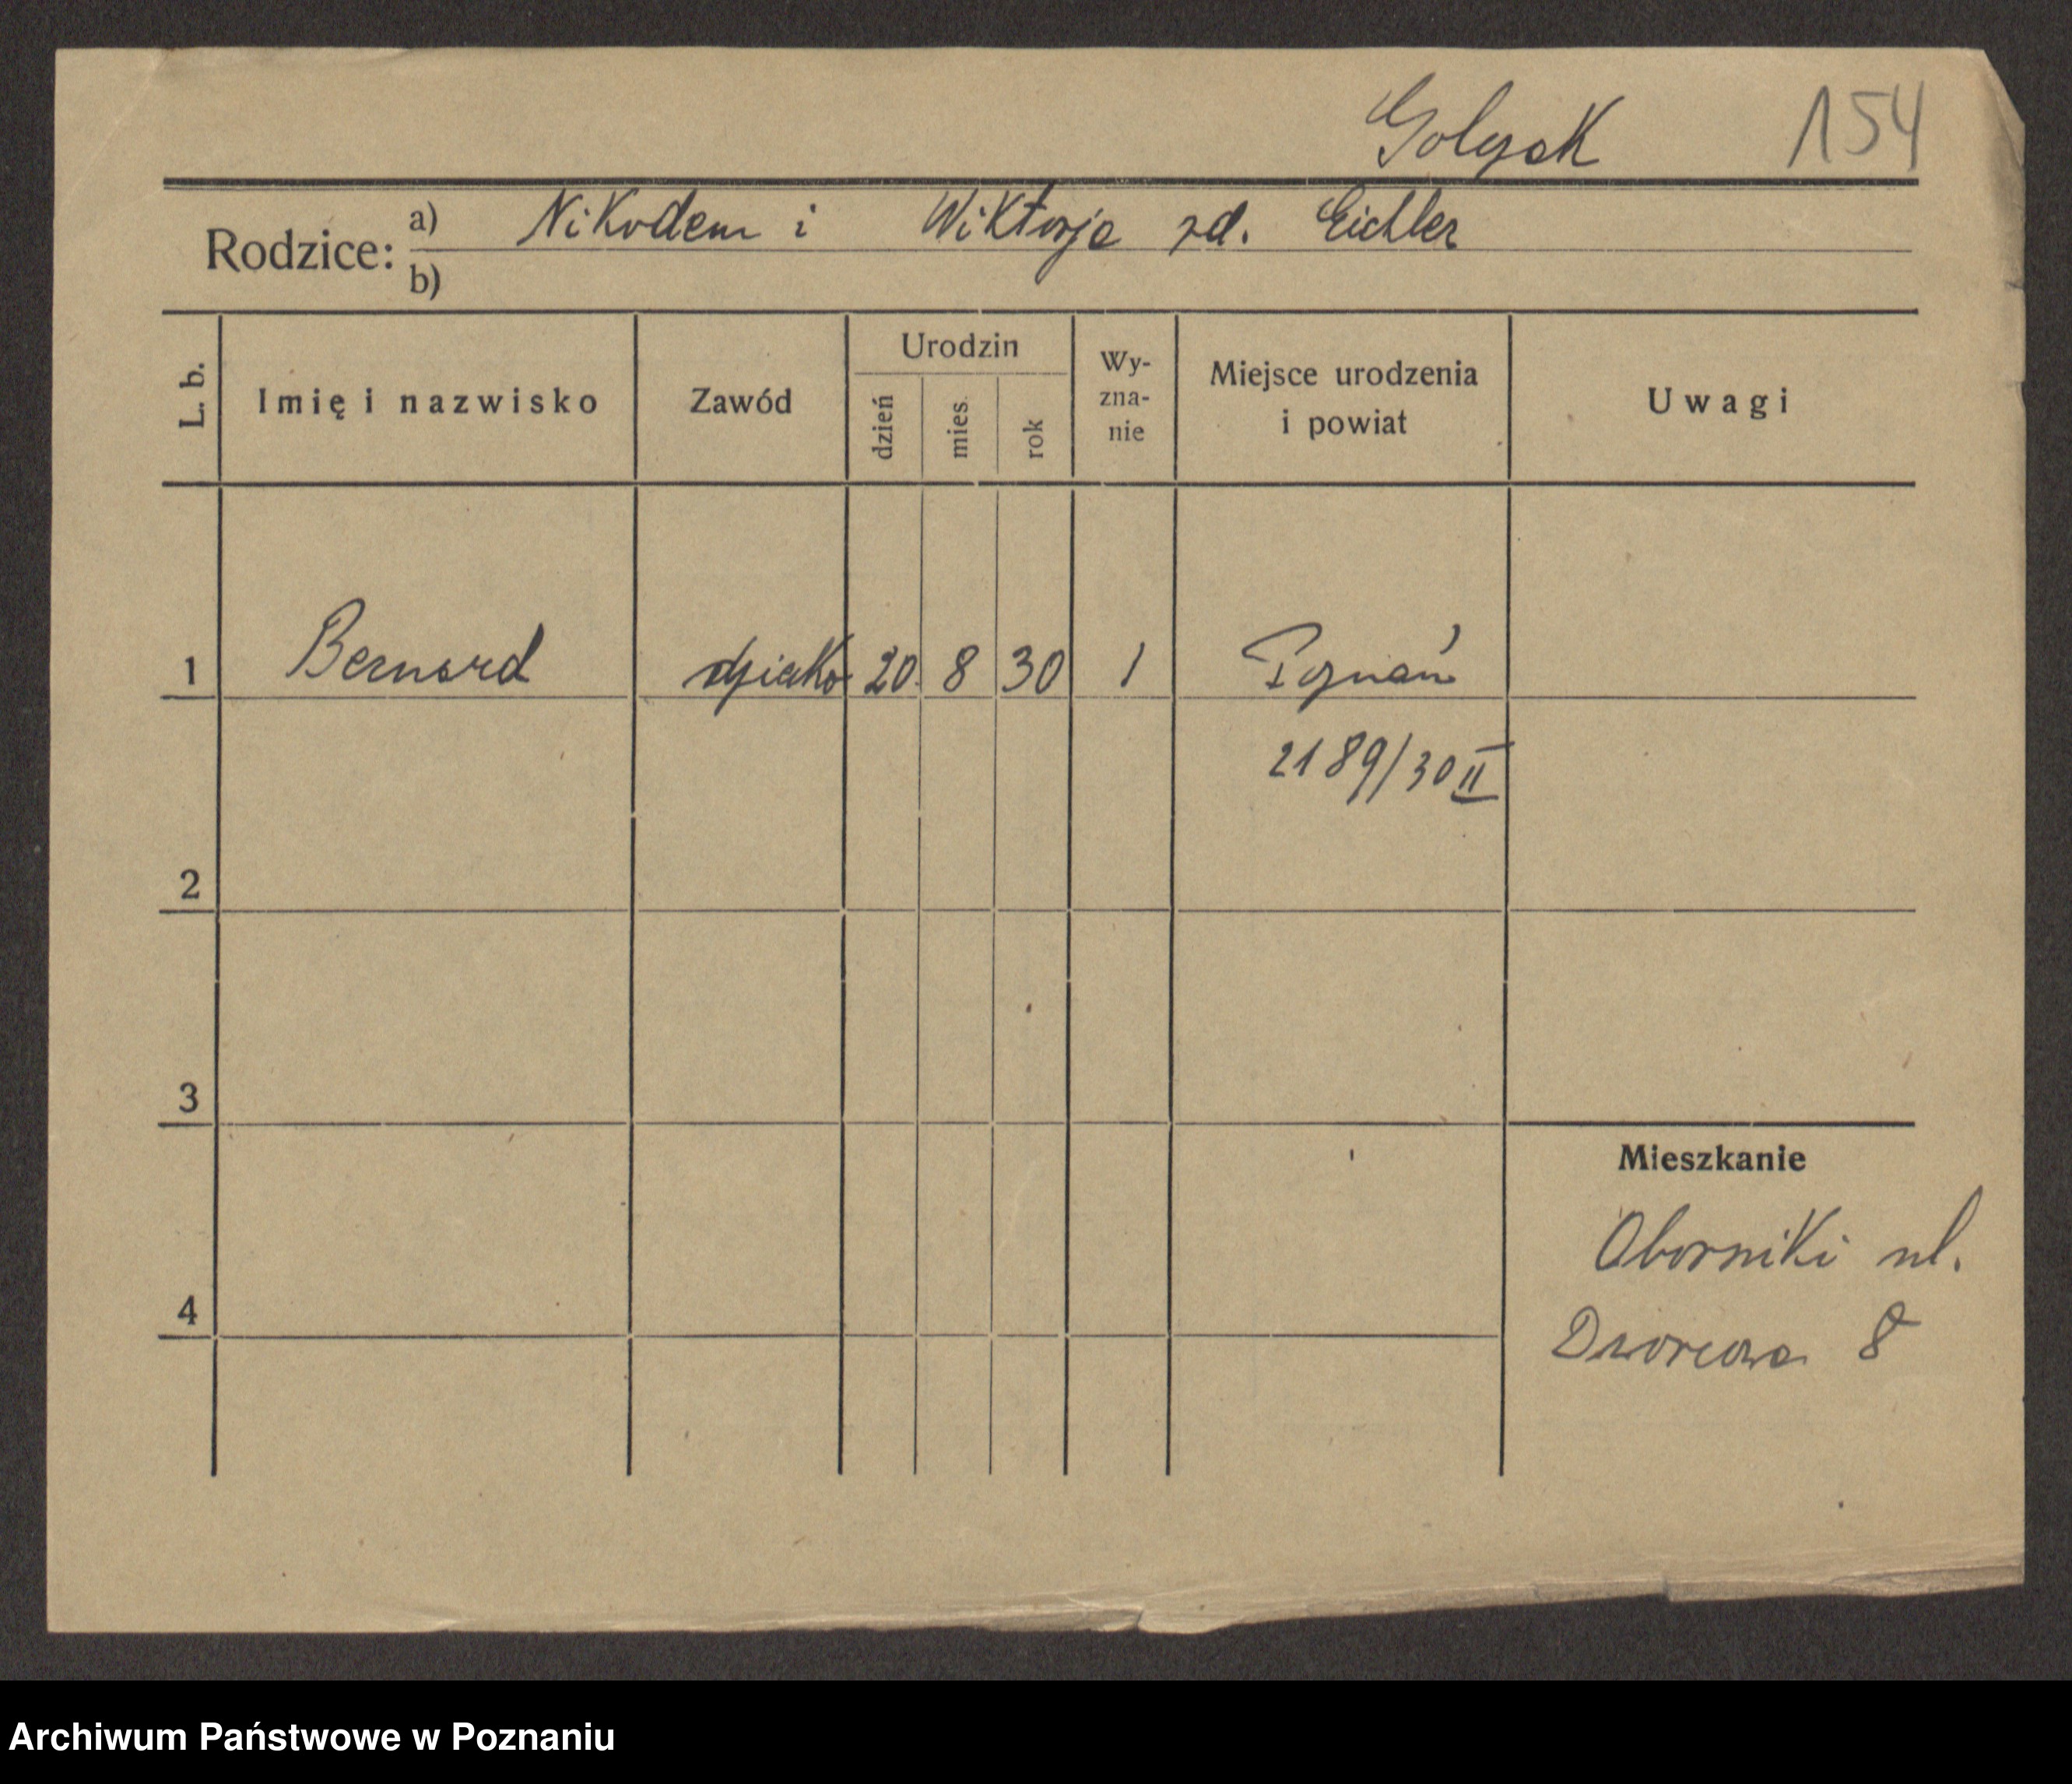 Golysok 154
Rodzice: a) Nikodem i Wiktorja zd. Eichler
b)
L. b. Imię i nazwisko Zawód Urodzin dzień mies. rok Wy-zna-nie Miejsce urodzenia i powiat Uwagi
1 Bernard dziecko 20. 8 30 1 Poznań
2189/30 II
2
3
Mieszkanie
Oborniki ul.
4
Dworcowa 8
Archiwum Państwowe w Poznaniu